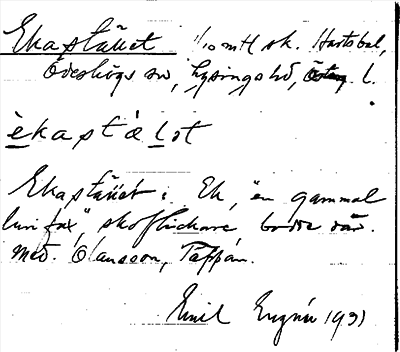 Ekastället 1/10 mtl sk. Hartsbol,
Ödeshögs sn, Lysings hd, Österg. l.
èkastälọt
Ekastället: Ek, "en gammal
lurifax", skoflickare, bodde där.
Med. Olausson, Täppan.
Emil 1931